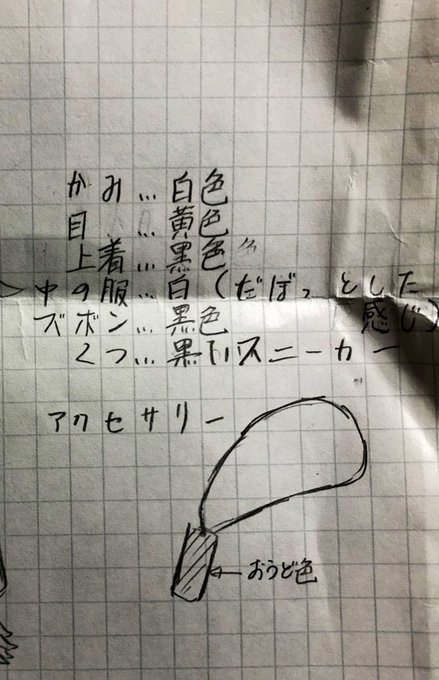 かみ…白色
目…黄色
上着…黒色
中の服…白(だぼっとした
ズボン…黒色 感じ)
くつ…黒いスニーカー
アクセサリー
おうど色